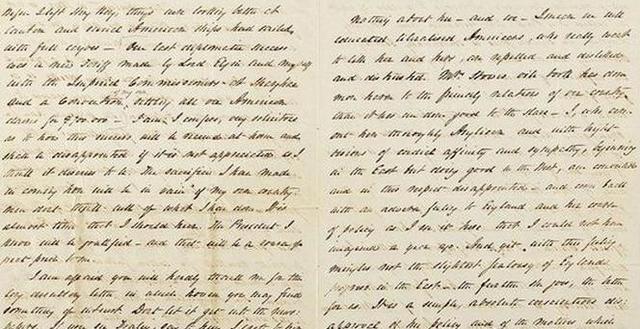 before I left Hong Kong, things were looking better at
Canton and several American ships had sailed
with full cargoes – Our last diplomatic success
was a new Tariff made by Lord Elgin and myself
with the Imperial Commissioners at Shanghai
and a Convention, settling all our American
claims for – I am, I confess, very solicitous
as to how this success will be received at home and
much be disappointed if it is not appreciated as I
think it deserves to be. The sacrifices I have made
in coming here will be in vain if my own country
men don't think well of what I have done. It is
almost time that I should hear. The President I
know will be gratified – and that will be a source of
great pride to me.
I am afraid you will hardly thank me for this
long desultory letter, in which however you may find
something of interest. Don't let it get into the news
papers.
nothing about her – and we – I mean we well
educated liberalised Americans, who really want
to like her and hers, are repelled and disliked
and distrusted. Mrs Stowe's vile book has done
more harm to the friendly relations of our country
than it has done good to the slave – I, who came
out here thoroughly Anglican and with high
visions of candid affinity and sympathy, beginning
in the East but doing good in the West, am
and in this respect disappointed – and come back
with an adverse feeling to England and her course
of policy as I see it here that I could not have
imagined a year ago. And yet with this feeling
mingles not the slightest jealousy of England's
progress in the East – the farther she goes, the better
for us. It is a simple, absolute conscientious dis
approval of the policy and of the motives which